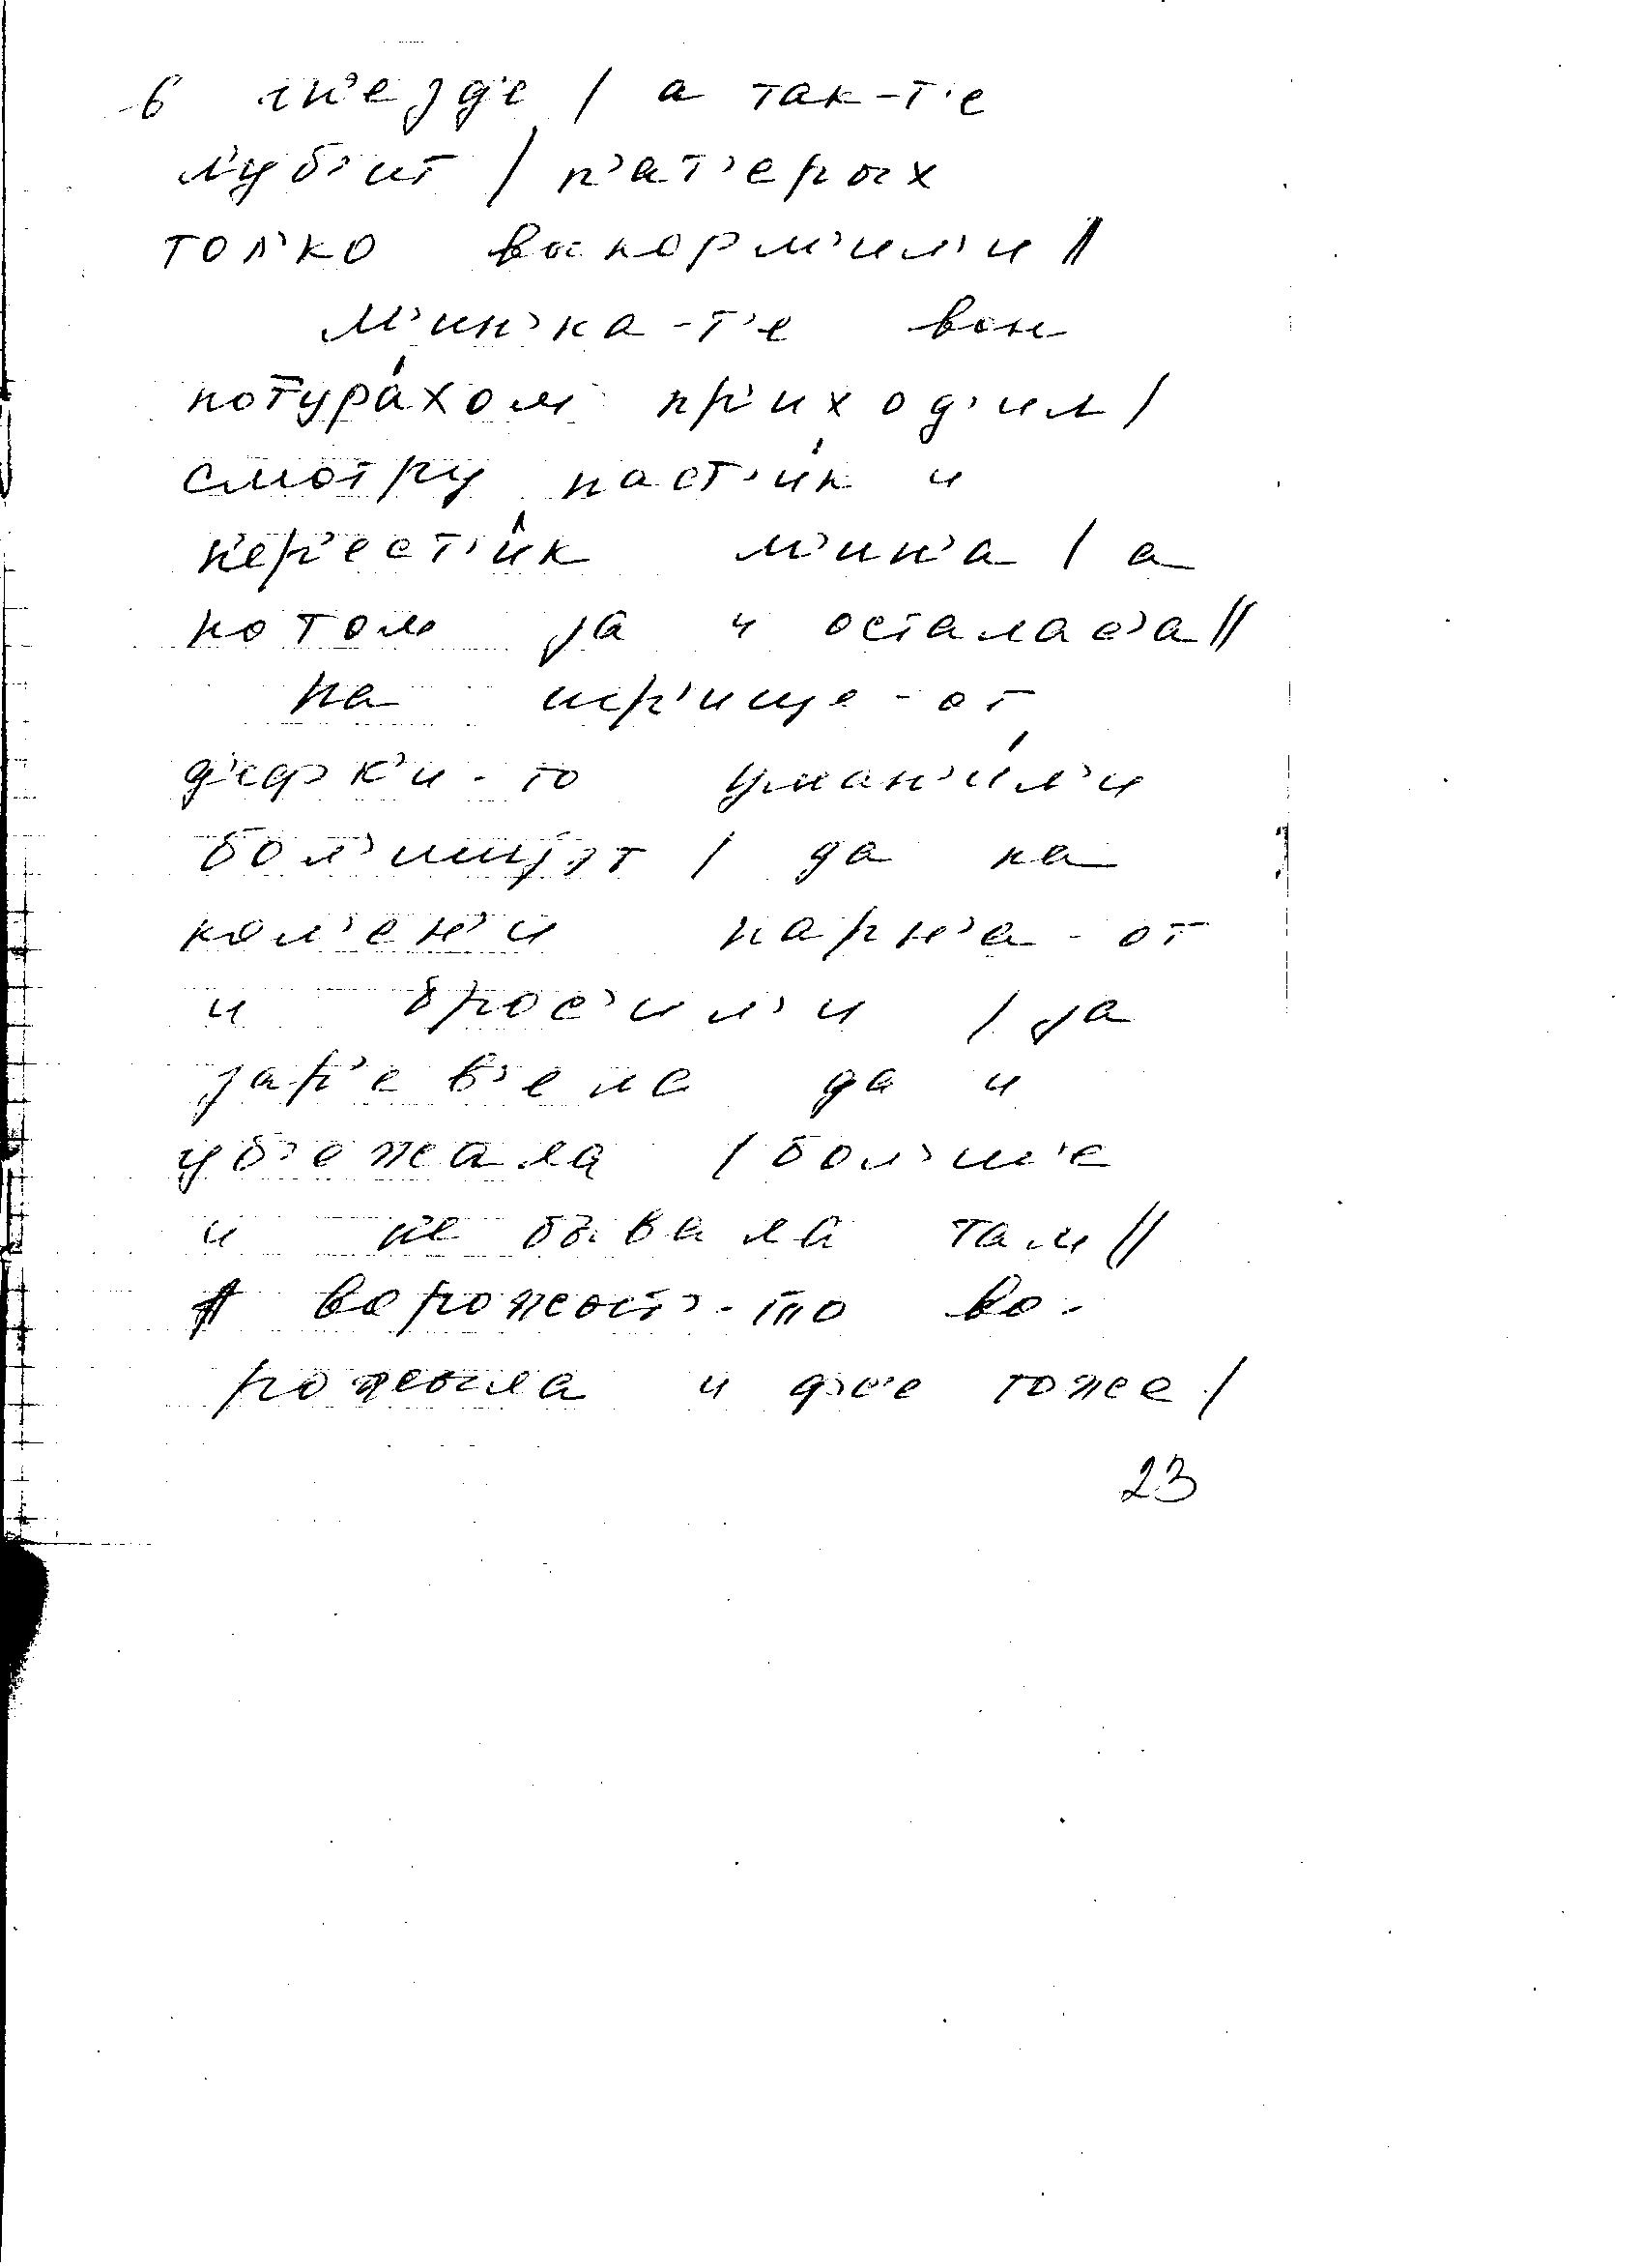 в гн'езд'е / а так-т'е
л'уб'ит / п'ат'ерых
тол'ко выкорм'ил'и //
М'ин'ка-т'е вон
потура́хом пр'иход'ил /
смотр'у паст'и́к и
п'ер'ест'и́к м'ин'а / а
потом jа и осталас'а //
На игр'ище-от
д'еф'к'и-то уман'и́л'и
бол'ишыjэт / да на
кол'ен'и парн'а-от
и брос'ил'и / jа
зар'ев'ела да и
уб'ежала / бол'ше
и н'е бывала там //
А ворожыт'-то во-
рожыла и фс'е тоже /
23